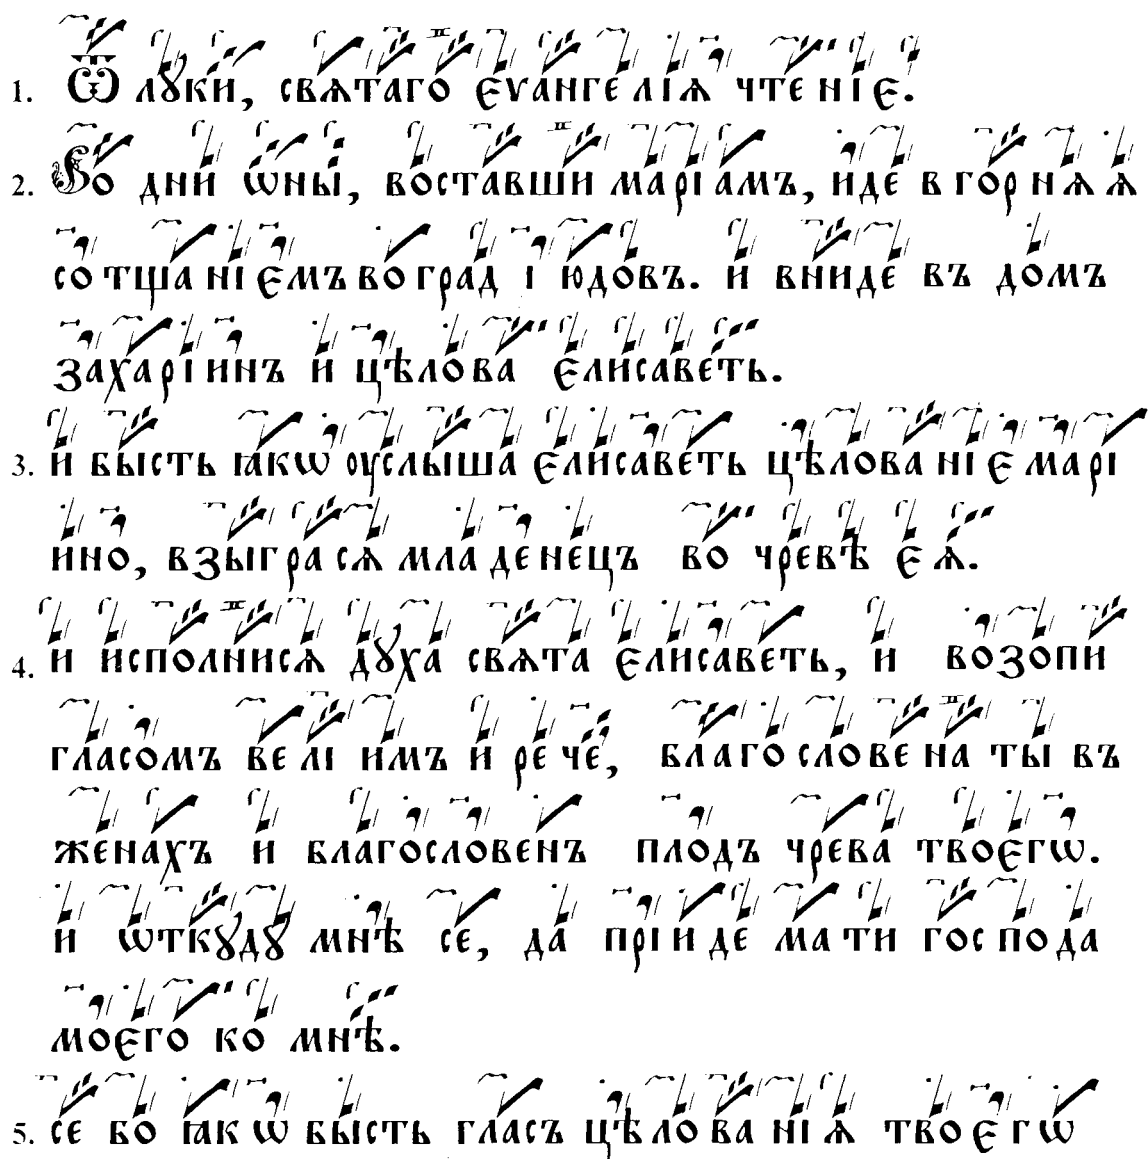 1. Ѿ лꙋки, свѧтаго єѵангелїѧ чтенїє.
2. Во дни ѡны, воставши марїамъ, иде в горнѧѧ
со тщанїємъ во град їюдовъ. и вниде въ дом
захарїинъ и цѣлова єлисаветь.
3. и бысть ꙗкѡ оуслыша єлисаветь цѣлованїє марї
ино, взыграсѧ младенецъ во чревѣ єѧ.
4. и исполнисѧ дꙋха свѧта єлисаветь, и возопи
гласомъ велїимъ и рече, благословена ты въ
женахъ и благословенъ плодъ чрева твоєгѡ.
и ѡткꙋдꙋ мнѣ се, да прїиде мати господа
моєго ко мнѣ.
5. се бо ꙗкѡ бысть гласъ цѣлованїѧ твоєгѡ